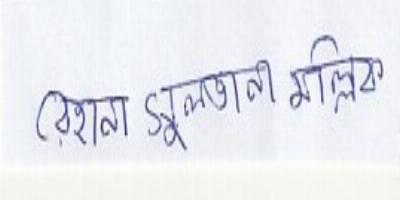 রেহানা সুলতানা মল্লিক